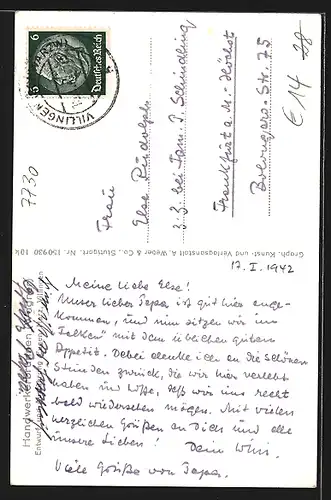 6
Deutsches Reich
VILLINGEN
Frau
Else Rudolph
z. Z. bei Fam. J. Schindling
Frankfurt a. M.-Höchst
Bolongaro-Str. 75
€ 14
28
7730
Graph. Kunst- und Verlagsanstalt A. Weber & Co., Stuttgart. Nr. 150930 10k
Handwerkerbrunnen
17. I. 1942
Meine liebe Else!
Unser lieber Papa ist gut hier ange-
kommen, und nun sitzen wir im
"Falken" mit dem üblichen guten
Appetit. Dabei denke ich an die schönen
Stunden zurück, die wir hier verlebt
haben und hoffe, daß wir uns recht
bald wiedersehen mögen. Mit vielen
herzlichen Grüßen an Dich und alle
unsere Lieben! Dein Willi.
Viele Grüße von Papa.